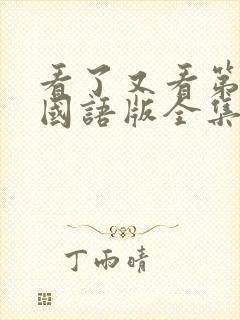 看了又看第
國語版全集
丁雨晴